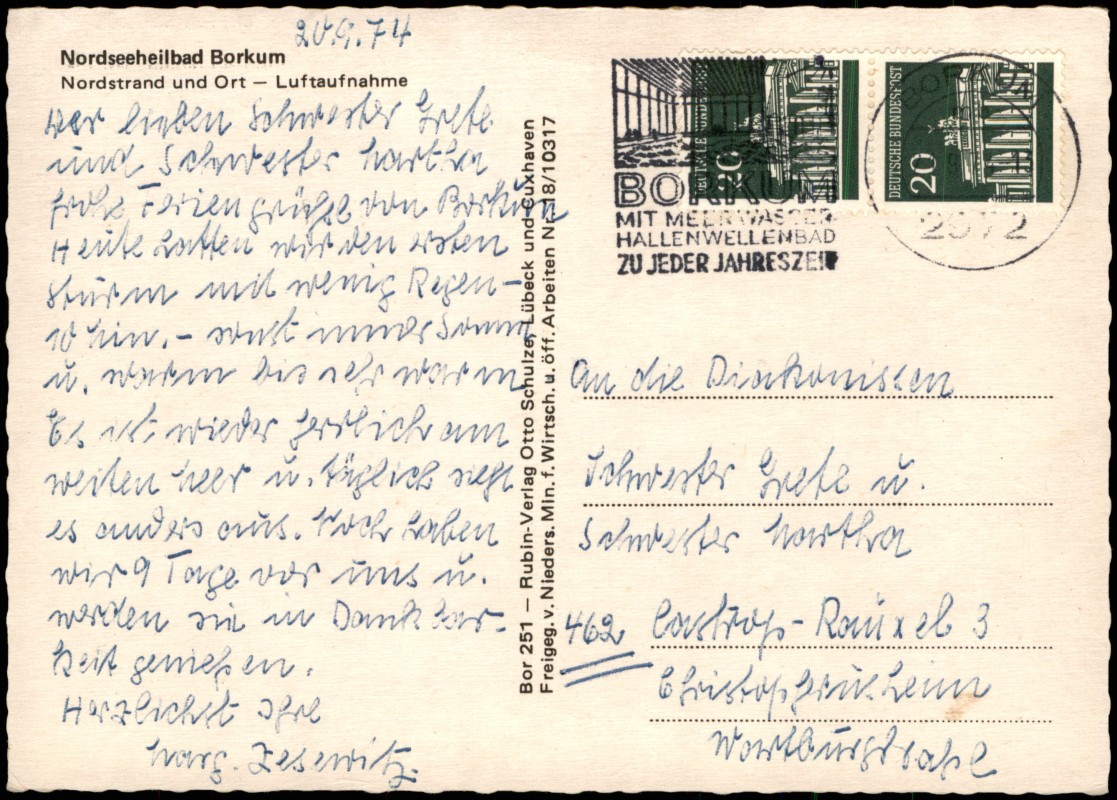 20.9.74
Nordseeheilbad Borkum
Nordstrand und Ort — Luftaufnahme
lieben Schwester Grete
und Schwester Martha
frohe Feriengrüße von Borkum
Heute hatten wir den ersten
Sturm mit wenig Regen –
10 Min. – sonst immer Sonne
u. warm bis sehr warm
Es ist wieder herrlich am
weiten Meer u. täglich sieht
es anders aus. Noch haben
wir 9 Tage vor uns u.
werden sie in Dankbar-
keit genießen.
Herzlichst Ihre
Marg. Zesewitz.
Bor 251 — Rubin-Verlag Otto Schulze, Lübeck und Cuxhaven
Freigeg. v. Nieders. Min. f. Wirtsch. u. öff. Arbeiten Nr. 18/10317
BORKUM
MIT MEERWASSER-
HALLENWELLENBAD
ZU JEDER JAHRESZEIT
DEUTSCHE BUNDESPOST
20
DEUTSCHE BUNDESPOST
20
BORKUM 1
2972
An die Diakonissen
Schwester Grete u.
Schwester Martha
462 Castrop-Rauxel 3
Christophorusheim
Wartburgstraße